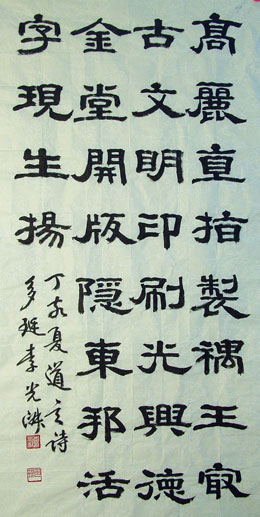 髙麗直指製禑王最
古文明印刷光興德
金堂開版隱東邦活
字現生揚
丁亥夏道玄詩
李光洙